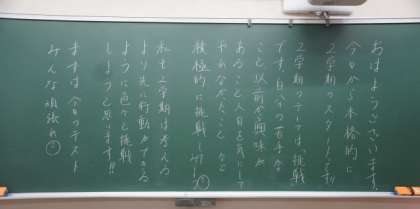 おはようございます。
今日から本格的に
2学期のスタートです!!
2学期のテーマは、"挑戦"
です。自分の苦手な
こと以前から興味が
あること人目を気にして
やれなかったこと など
積極的に挑戦しみましょう
私も2学期は考える
より先に行動ができる
ように色々と挑戦
しようと思います!!
まずは今日のテスト
みんな頑張れ